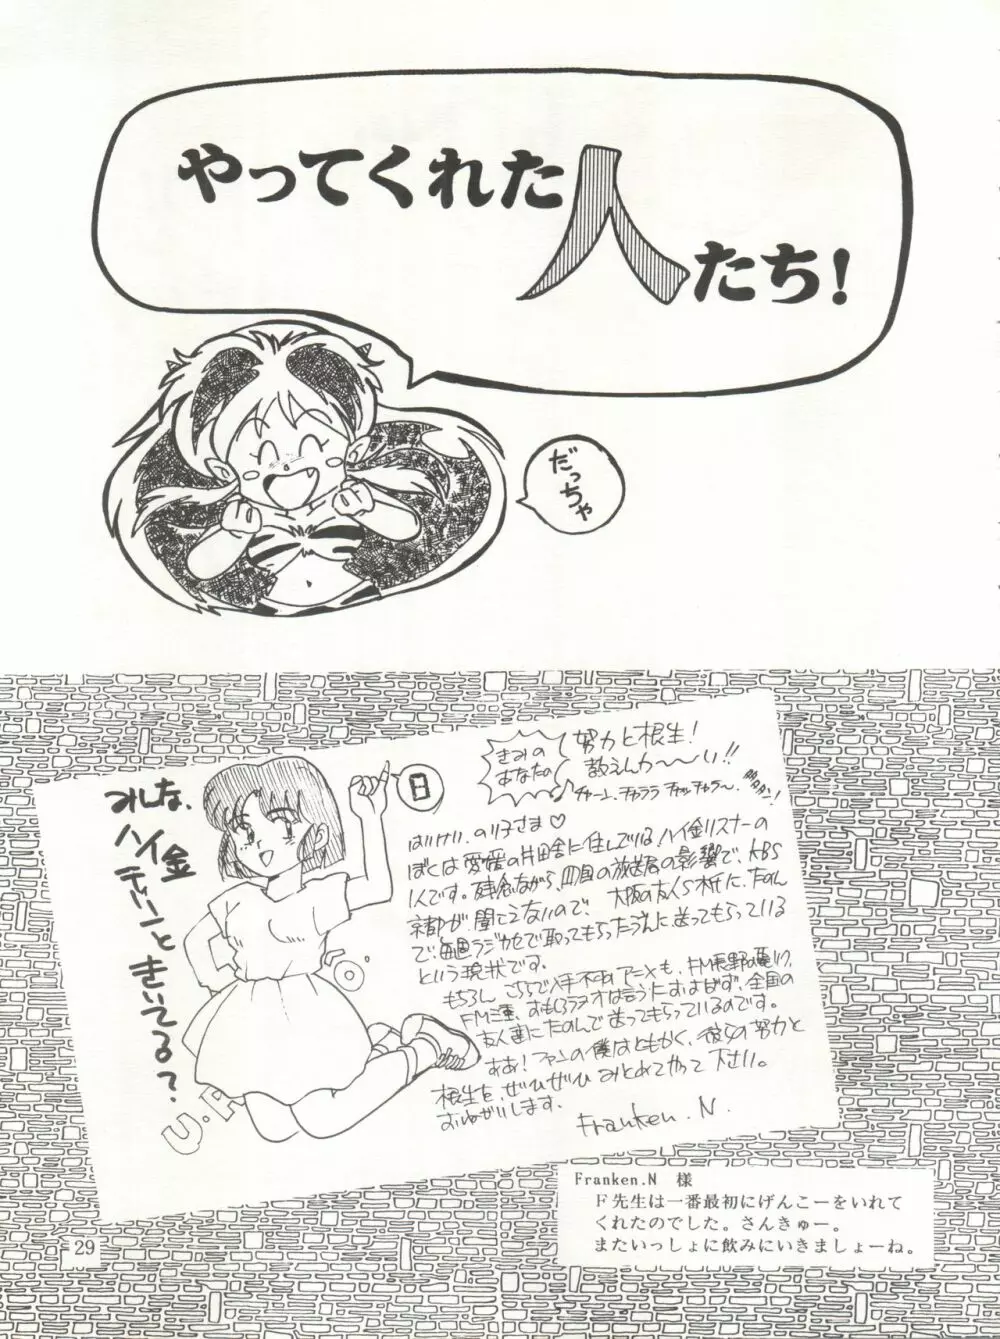 やってくれた人たち!
だっちゃ
みんな、
ハイ金
きいてる?
日
きみの
あなたの
努力と根生!
教えんか〜〜い!!
はいけい、のり子さま♡
ぼくは愛媛の片田舎に住んでいる、ハイ金リスナーの
1人です。残念ながら、四国の放送局の影響で、KBS
京都が聞こえないので、大阪の友くら
で、毎週ラジカセで取ってもらったうえに送ってもらっている
という現状です。
もちろん こちらで入手不可のアニメも、FM長野の
FM三重、おもしろラヂオは言うにおよばず、全国の
友人達にたのんで送ってもらっているのです。
ああ!ファンの僕はともかく、彼女の努力と
根生を、ぜひぜひ みとめてやって下さい。
おねがいします。
Franken.N.
U.P
Franken.N 様
F先生は一番最初にげんこーをいれて
くれたのでした。さんきゅー。
またいっしょに飲みにいきましょーね。
29